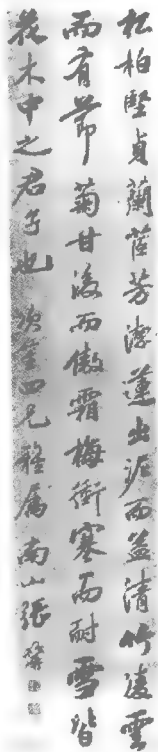 松柏堅貞蘭茝芳潔蓮出泥而益清竹淩雲
而有節菊甘淡而傲霜梅衝寒而耐雪皆
花木中之君子也 庚金四兄雅屬 南山張